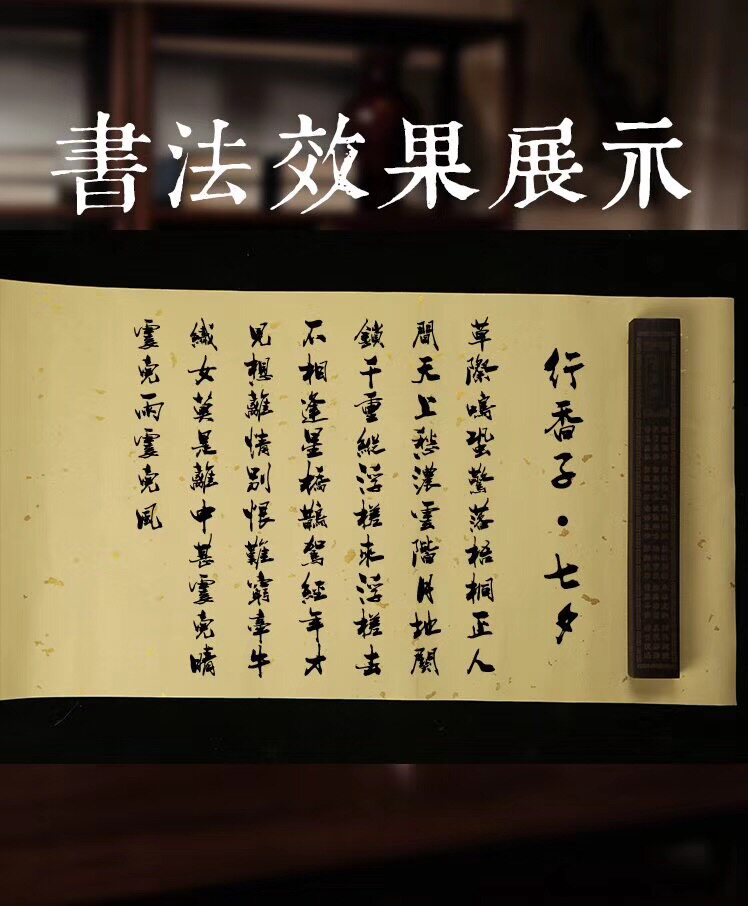 書法效果展示
行香子·七夕
草際鳴蛩驚落梧桐正人
間天上愁濃雲階月地關
鎖千重縱浮槎來浮槎去
不相逢星橋鵲駕經年才
見想離情別恨難窮牽牛
織女莫是離中甚霎兒晴
霎兒雨霎兒風